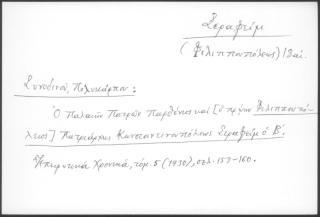 Σεραφείμ
(Φιλιππουπόλεως)
Συνοδινοῦ, Πολυκάρπου:
Ὁ Παλαιῶν Πατρῶν Παρθένιος καὶ [ὁ πρώην Φιλιππουπό-
λεως] Πατριάρχης Κωνσταντινουπόλεως Σεραφείμ ὁ Β΄.
Ἠπειρωτικὰ Χρονικά, τόμ. 5 (1930), σελ. 157-160.